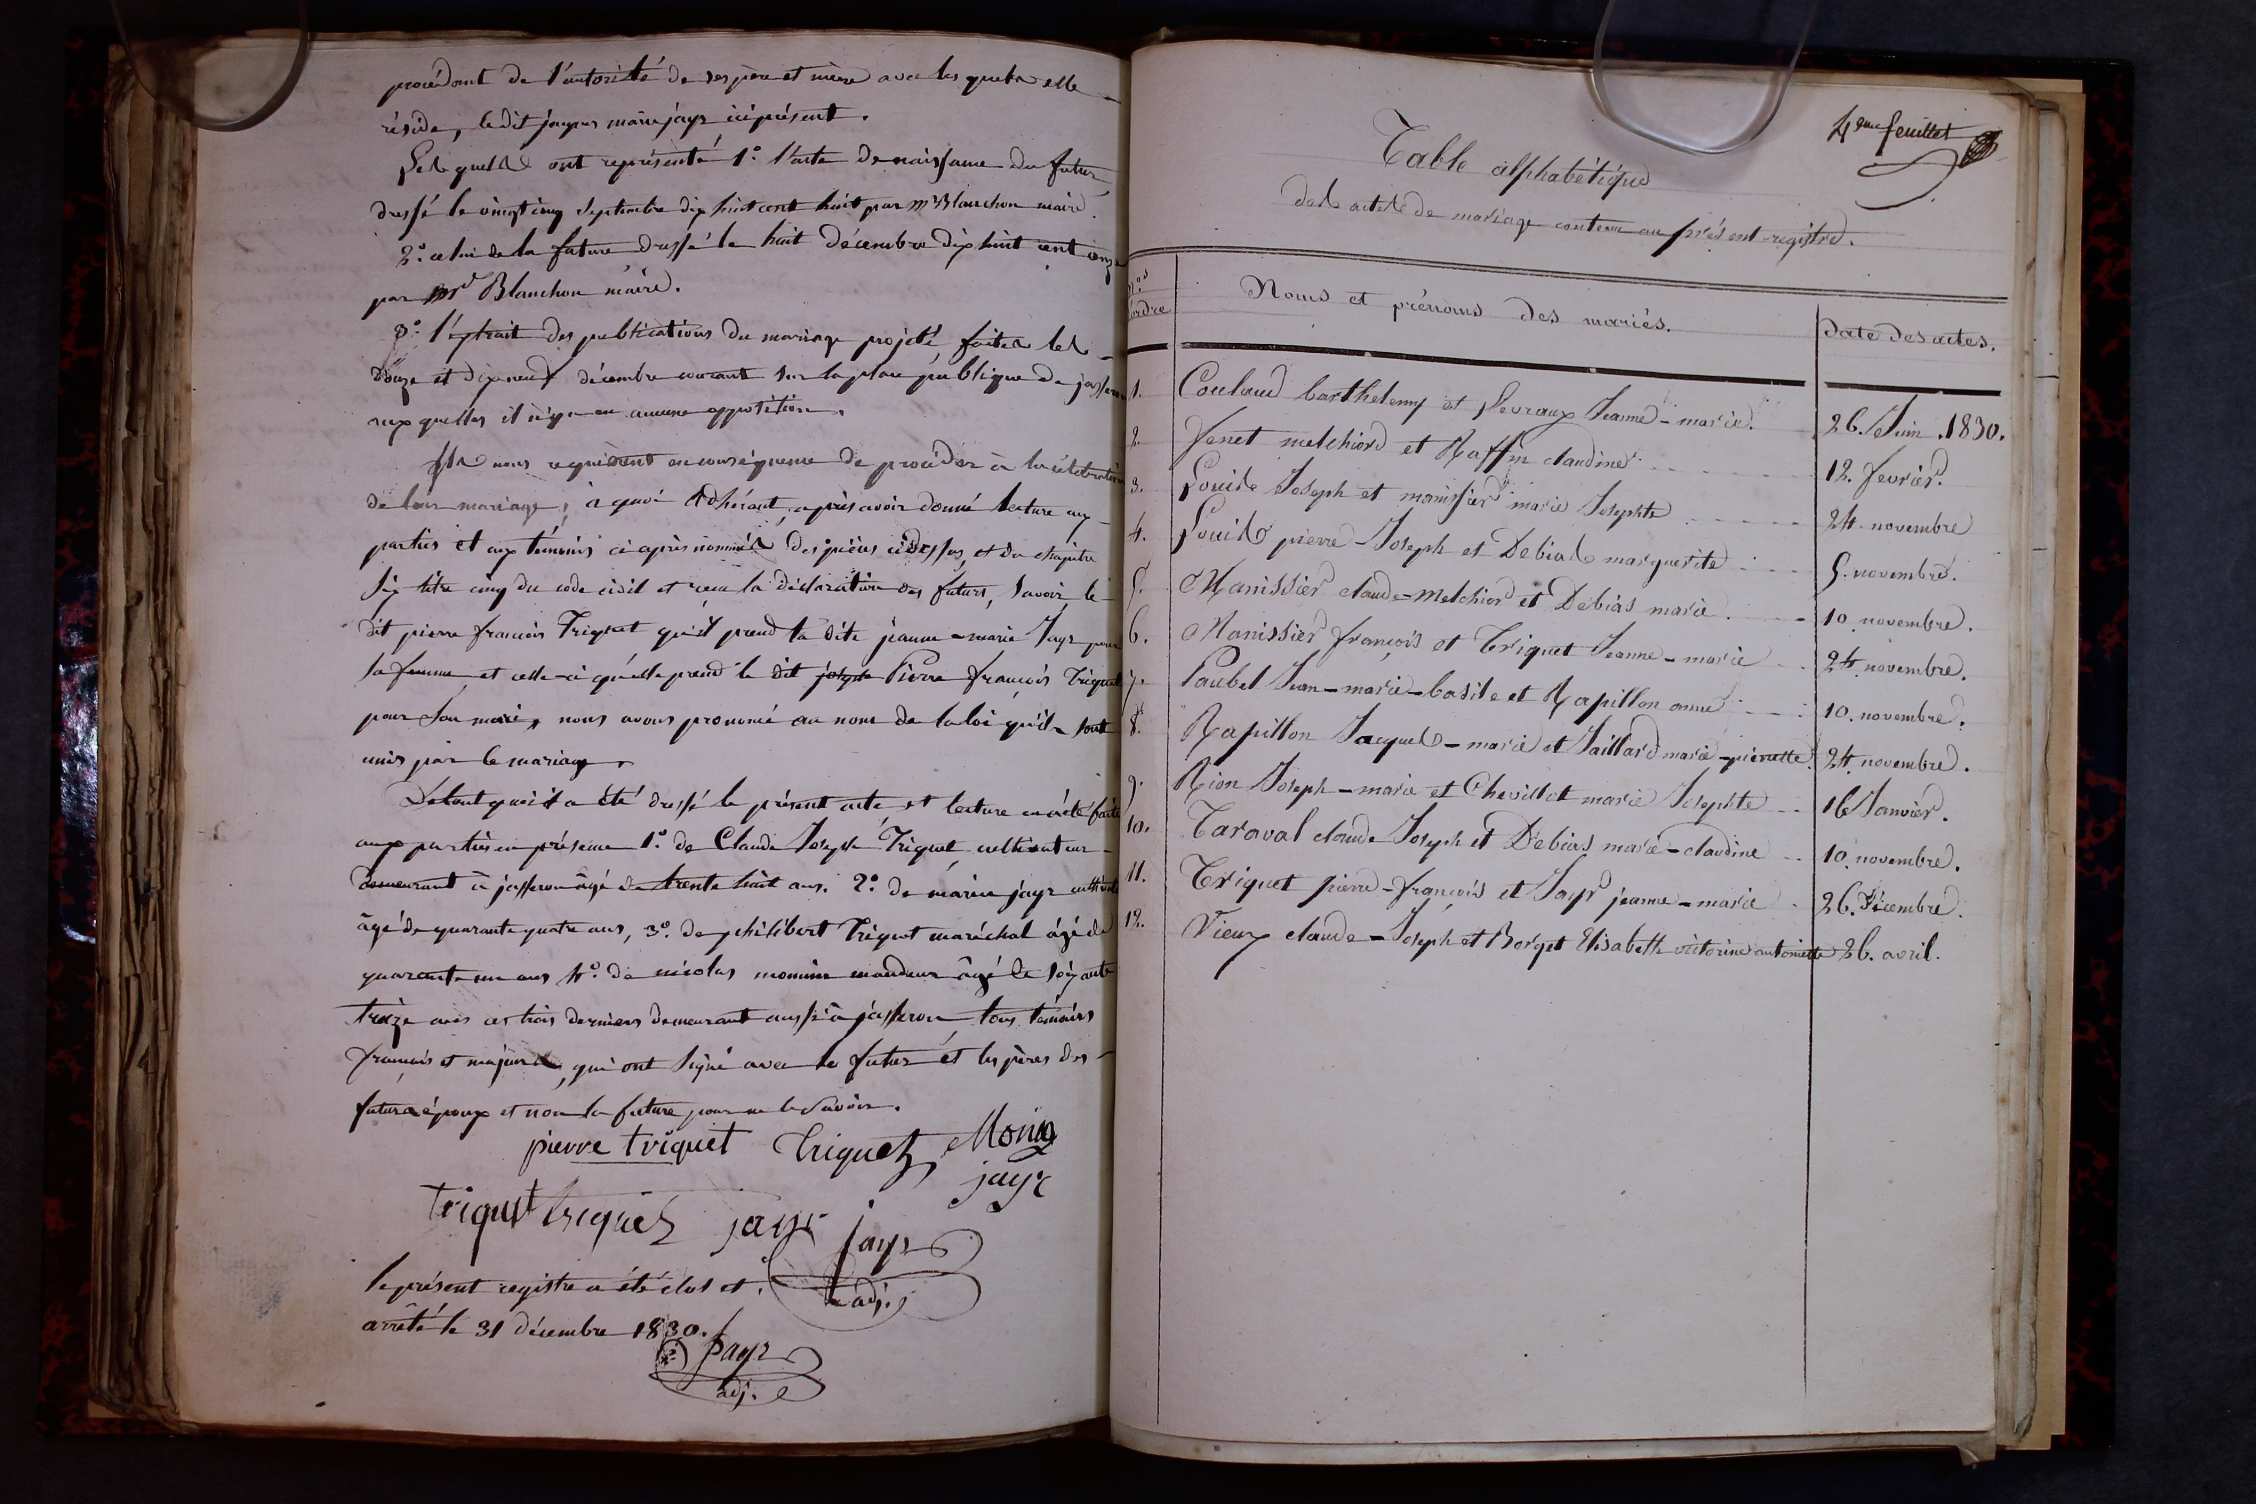 procédant de l'autorité de ses père et mère avec les quels elle
réside, le dit jacques marie jayr ici présent.
Les quels ont représenté 1.° l'acte de naissance du futur
dressé le vingt cinq septembre dix huit cent huit par mr Blanchon maire.
2.° celui de la future dressé le huit décembre dix huit cent onze
par mr Blanchon maire.
3.° l'extrait des publications du mariage projeté faites les
douze et dix neuf décembre courant sur la place publique de jasseron
aux quelles il n'y a eu aucune opposition.
Ils nous requièrent en conséquence de procéder à la célébration
de leur mariage; à quoi adhérant, après avoir donné lecture aux
parties et aux témoins ci après nommés des pièces ci dessus, et du chapitre
six titre cinq du code civil et reçu la déclaration des futurs, savoir, le
dit pierre françois Triquet qu'il prend la dite jeanne-marie Jayr pour
sa femme, et celle-ci qu'elle prend le dit joseph Pierre françois Triquet
pour son mari, nous avons prononcé au nom de la loi qu'ils sont
unis par le mariage.
De tout quoi il a été dressé le présent acte, et lecture en a été faite
aux parties en présence 1.° de Claude Joseph Triquet cultivateur
demeurant à jasseron âgé de trente huit ans. 2.° de marin jayr
âgé de quarante quatre ans, 3.° de philibert Triquet maréchal âgé de
quarante un ans 4.° de nicolas âgé de soixante
treize ans ces trois derniers demeurant aussi à jasseron, tous témoins
français et majeurs, qui ont signé avec le futur et les pères des
futurs époux et non la future pour ne le savoir.
pierre triquet Triquet
jayr
triquet triquet jayr jayr
adj.
le présent registre a été clos et
arrêté le 31 décembre 1830.
Jayr
adj.
4eme feuillet
Table alphabétique
des actes de mariage contenu au présent registre.
Nos d'ordre Noms et prénoms des mariés. Date des actes.
1. Coulaud barthelemy et Jeanne-marie. 26. Juin. 1830.
2. Venet melchior et Raffin claudine 12. fevrier.
3. Louis Joseph et manissier marie Josephte 24 novembre
4. Louis pierre-Joseph et Debias marguerite 5. novembre.
5. Manissier claude-melchior et Debias marie 10 novembre.
6. Manissier françois et Triquet Jeanne-marie 24 novembre.
7. Paubel Jean-marie-basile et Rapillon anne 10. novembre.
8. Rapillon Jacques-marie et Paillard marie-pierrette. 24. novembre.
9. Rion Joseph-marie et Chevillet marie Josephte 16 Janvier.
10. Taraval claude Joseph et Debias marie-claudine 10. novembre.
11. Triquet pierre-françois et Jayr jeanne-marie 26. Décembre.
12. Vieux claude-Joseph et Borget Elisabeth victorine antoinette 26. avril.